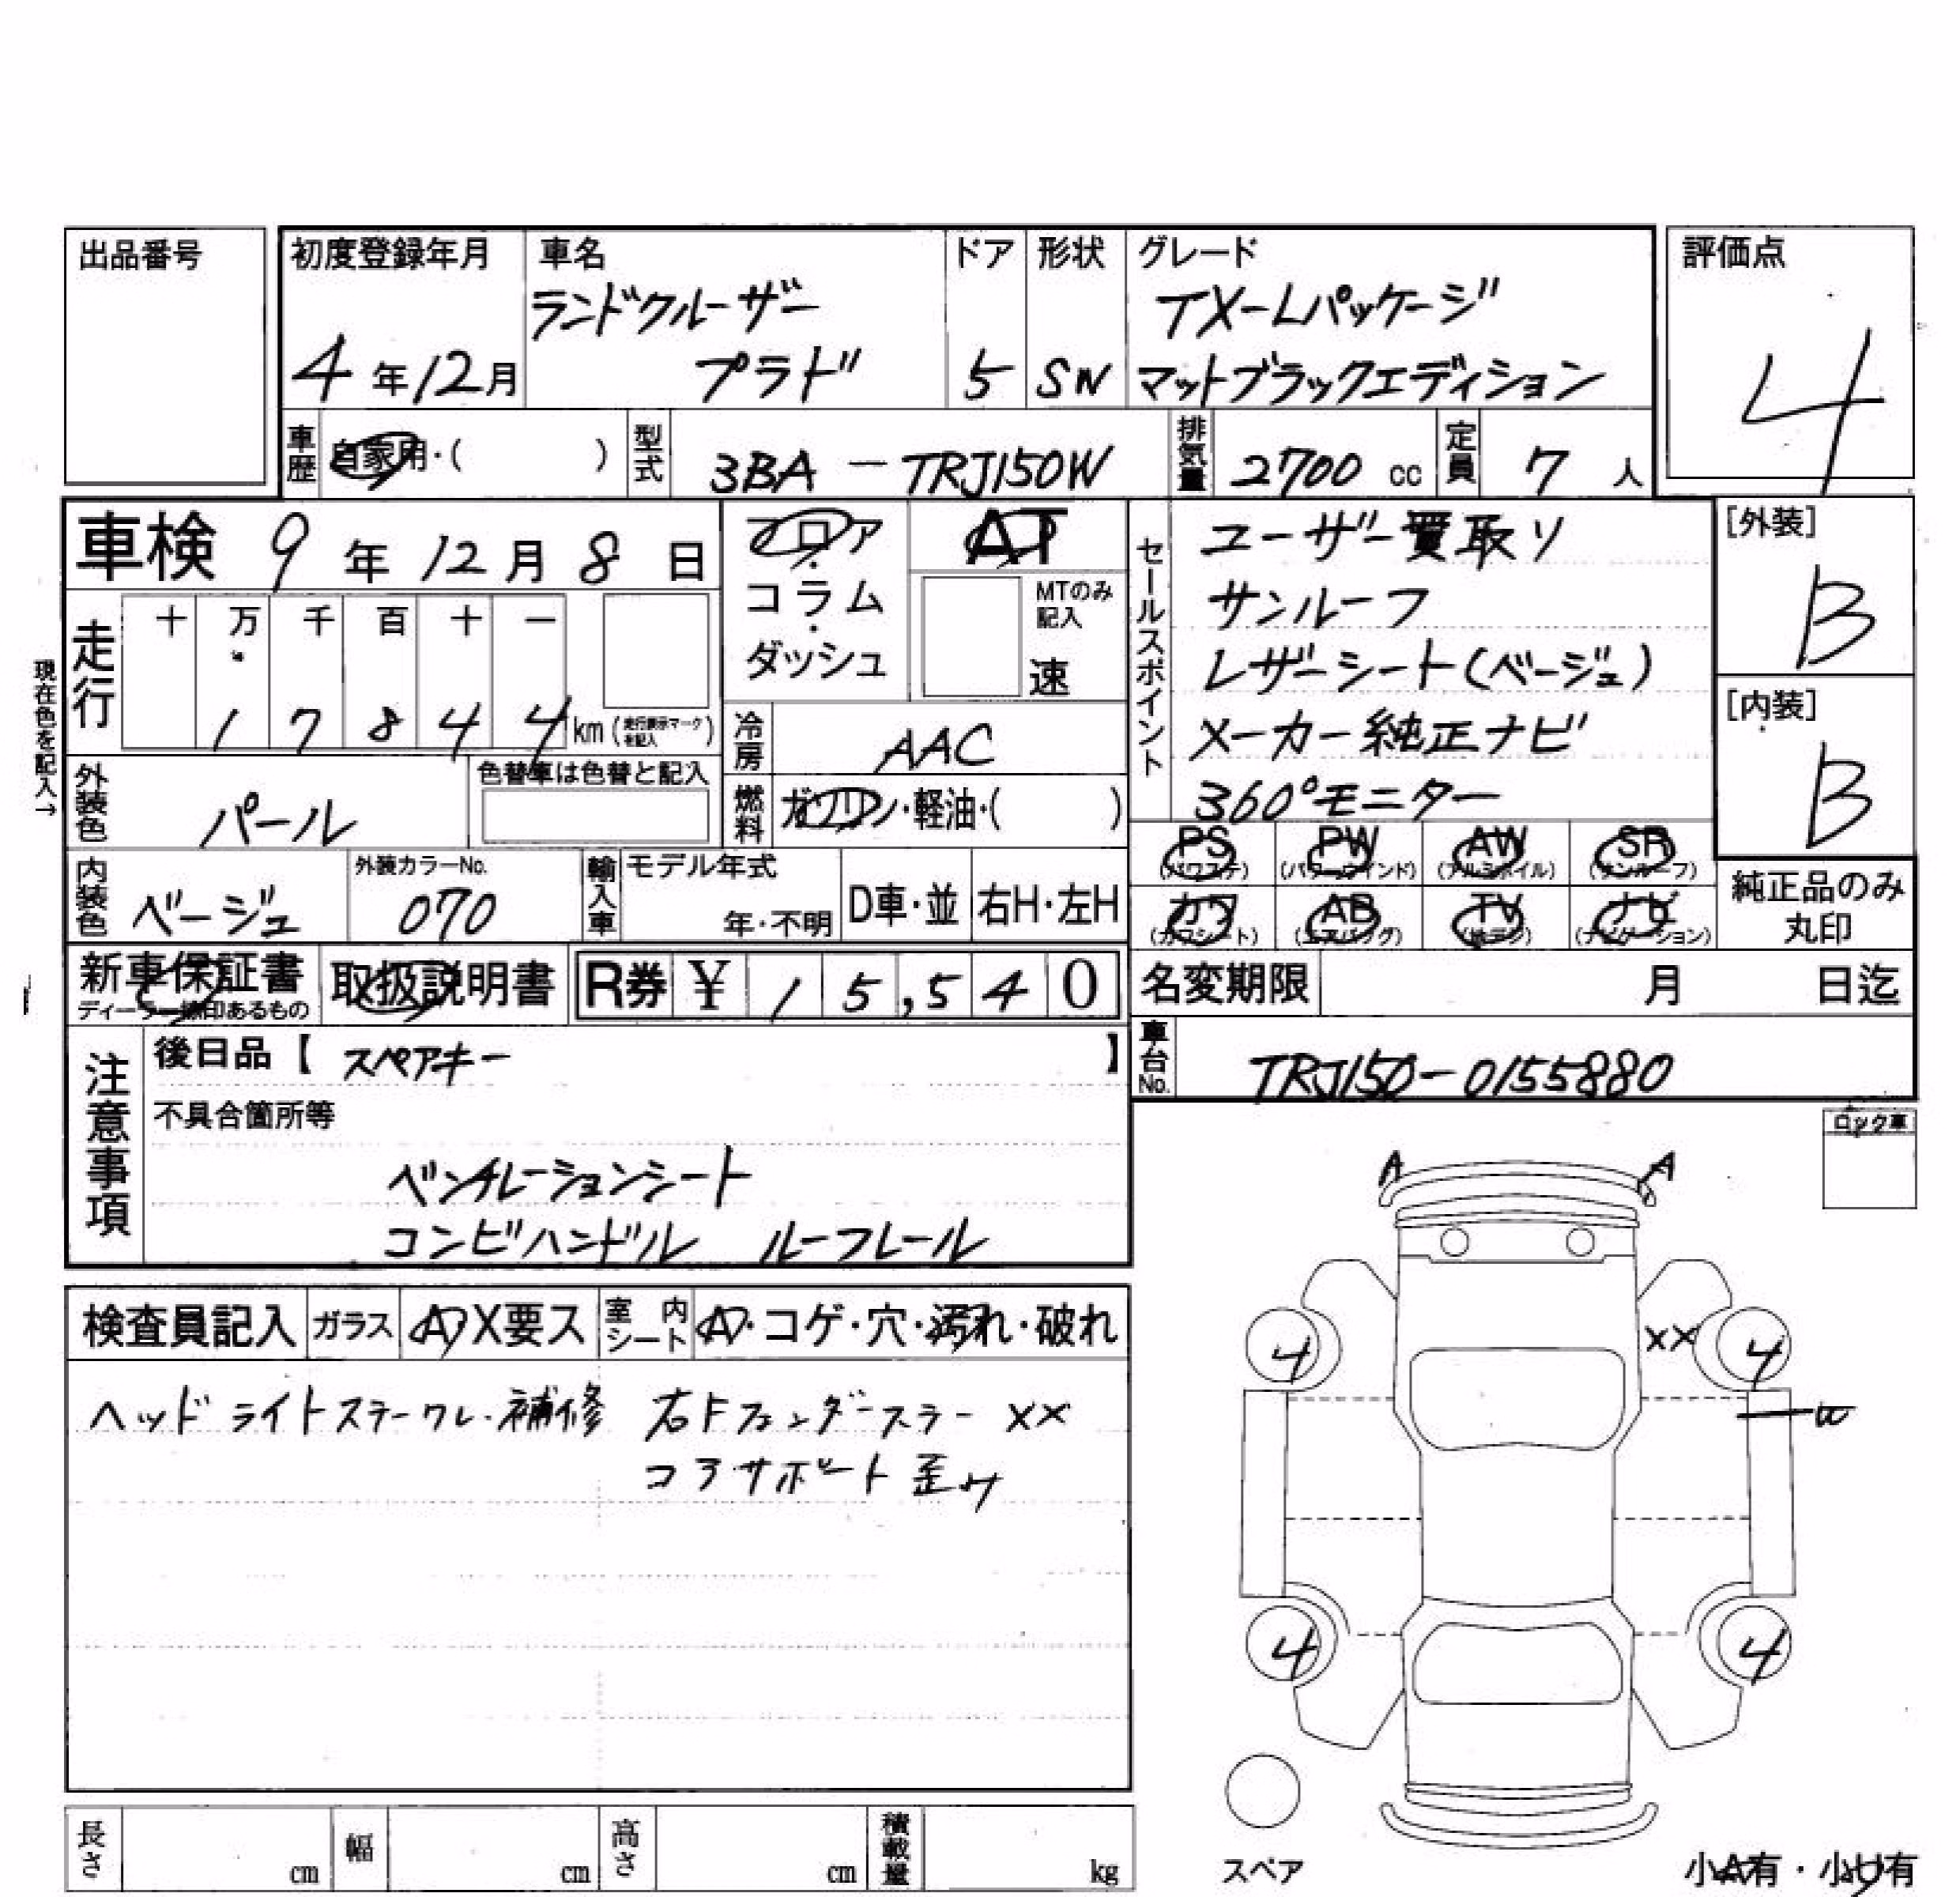 出品番号
初度登録年月 車名 ドア 形状 グレード 評価点
ランドクルーザー TX-Lパッケージ
4年12月 プラド 5 SW マットブラックエディション 4
車歴 自家用・( ) 型式 3BA-TRJ150W 排気量 2700 cc 定員 7人
車検 9年12月8日 フロア AT
・コラム・ MTのみ記入
ダッシュ 速
走行 十 万 千 百 十 一
1 7 8 4 4 km (走行表示マークを記入)
現在色を記入→
冷房 AAC
外装色 パール 色替車は色替と記入
燃料 ガソリン・軽油・( )
セールスポイント ユーザー買取り
サンルーフ
レザーシート(ベージュ)
メーカー純正ナビ
360°モニター
[外装]
B
[内装]
B
PS (パワステ) PW (パワーウインド) AW (アルミホイル) SR (サンルーフ)
カワ (カワシート) AB (エアバッグ) TV (地デジ) ナビ (ナビゲーション)
純正品のみ
丸印
内装色 ベージュ 外装カラーNo. 070 輸入車 モデル年式 年・不明 D車・並 右H・左H
新車保証書 取扱説明書 R券 ¥ 1 5,5 4 0
ディーラー捺印あるもの
名変期限 月 日迄
車台No. TRJ150-0155880
注意事項 後日品【 スペアキー 】
不具合箇所等
ベンチレーションシート
コンビハンドル ルーフレール
ロック車
検査員記入 ガラス A X要ス 室内シート A・コゲ・穴・汚れ・破れ
ヘッドライトステー 補修 右Fフェンダーステー XX
コアサポート歪み
A A
XX
4 4
W
4 4
スペア
小A有・小U有
長さ cm 幅 cm 高さ cm 積載量 kg